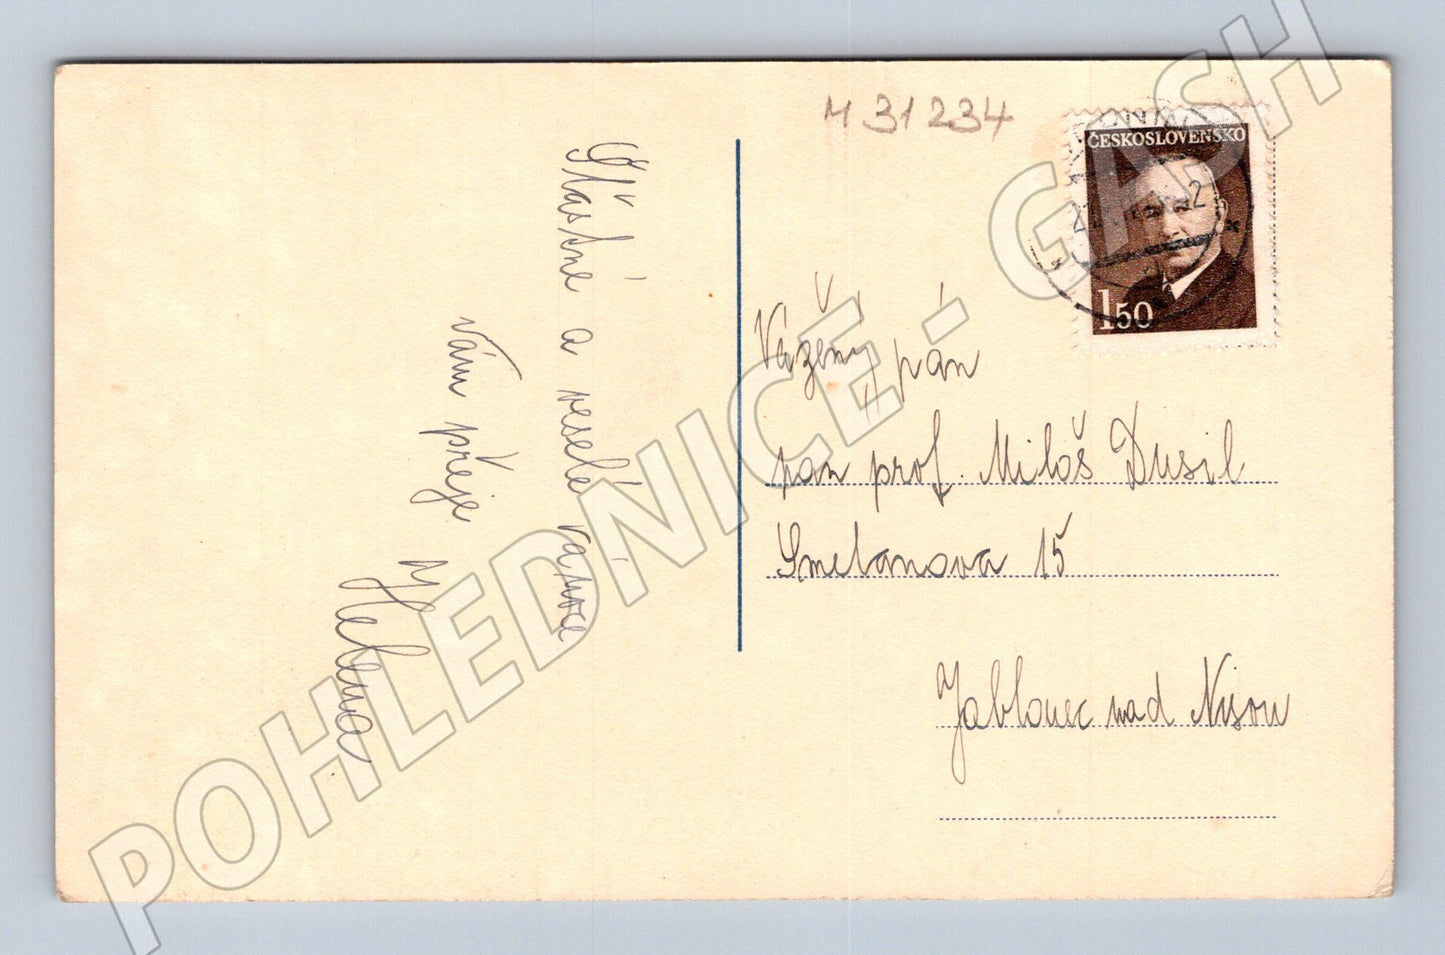 M 31234
ČESKOSLOVENSKO
150
Šťastné a veselé vánoce
Vám přeje
Helena
Vážený pán
pan prof. Miloš Dusil
Smetanova 15
Jablonec nad Nisou
POHLEDNICE - GASH